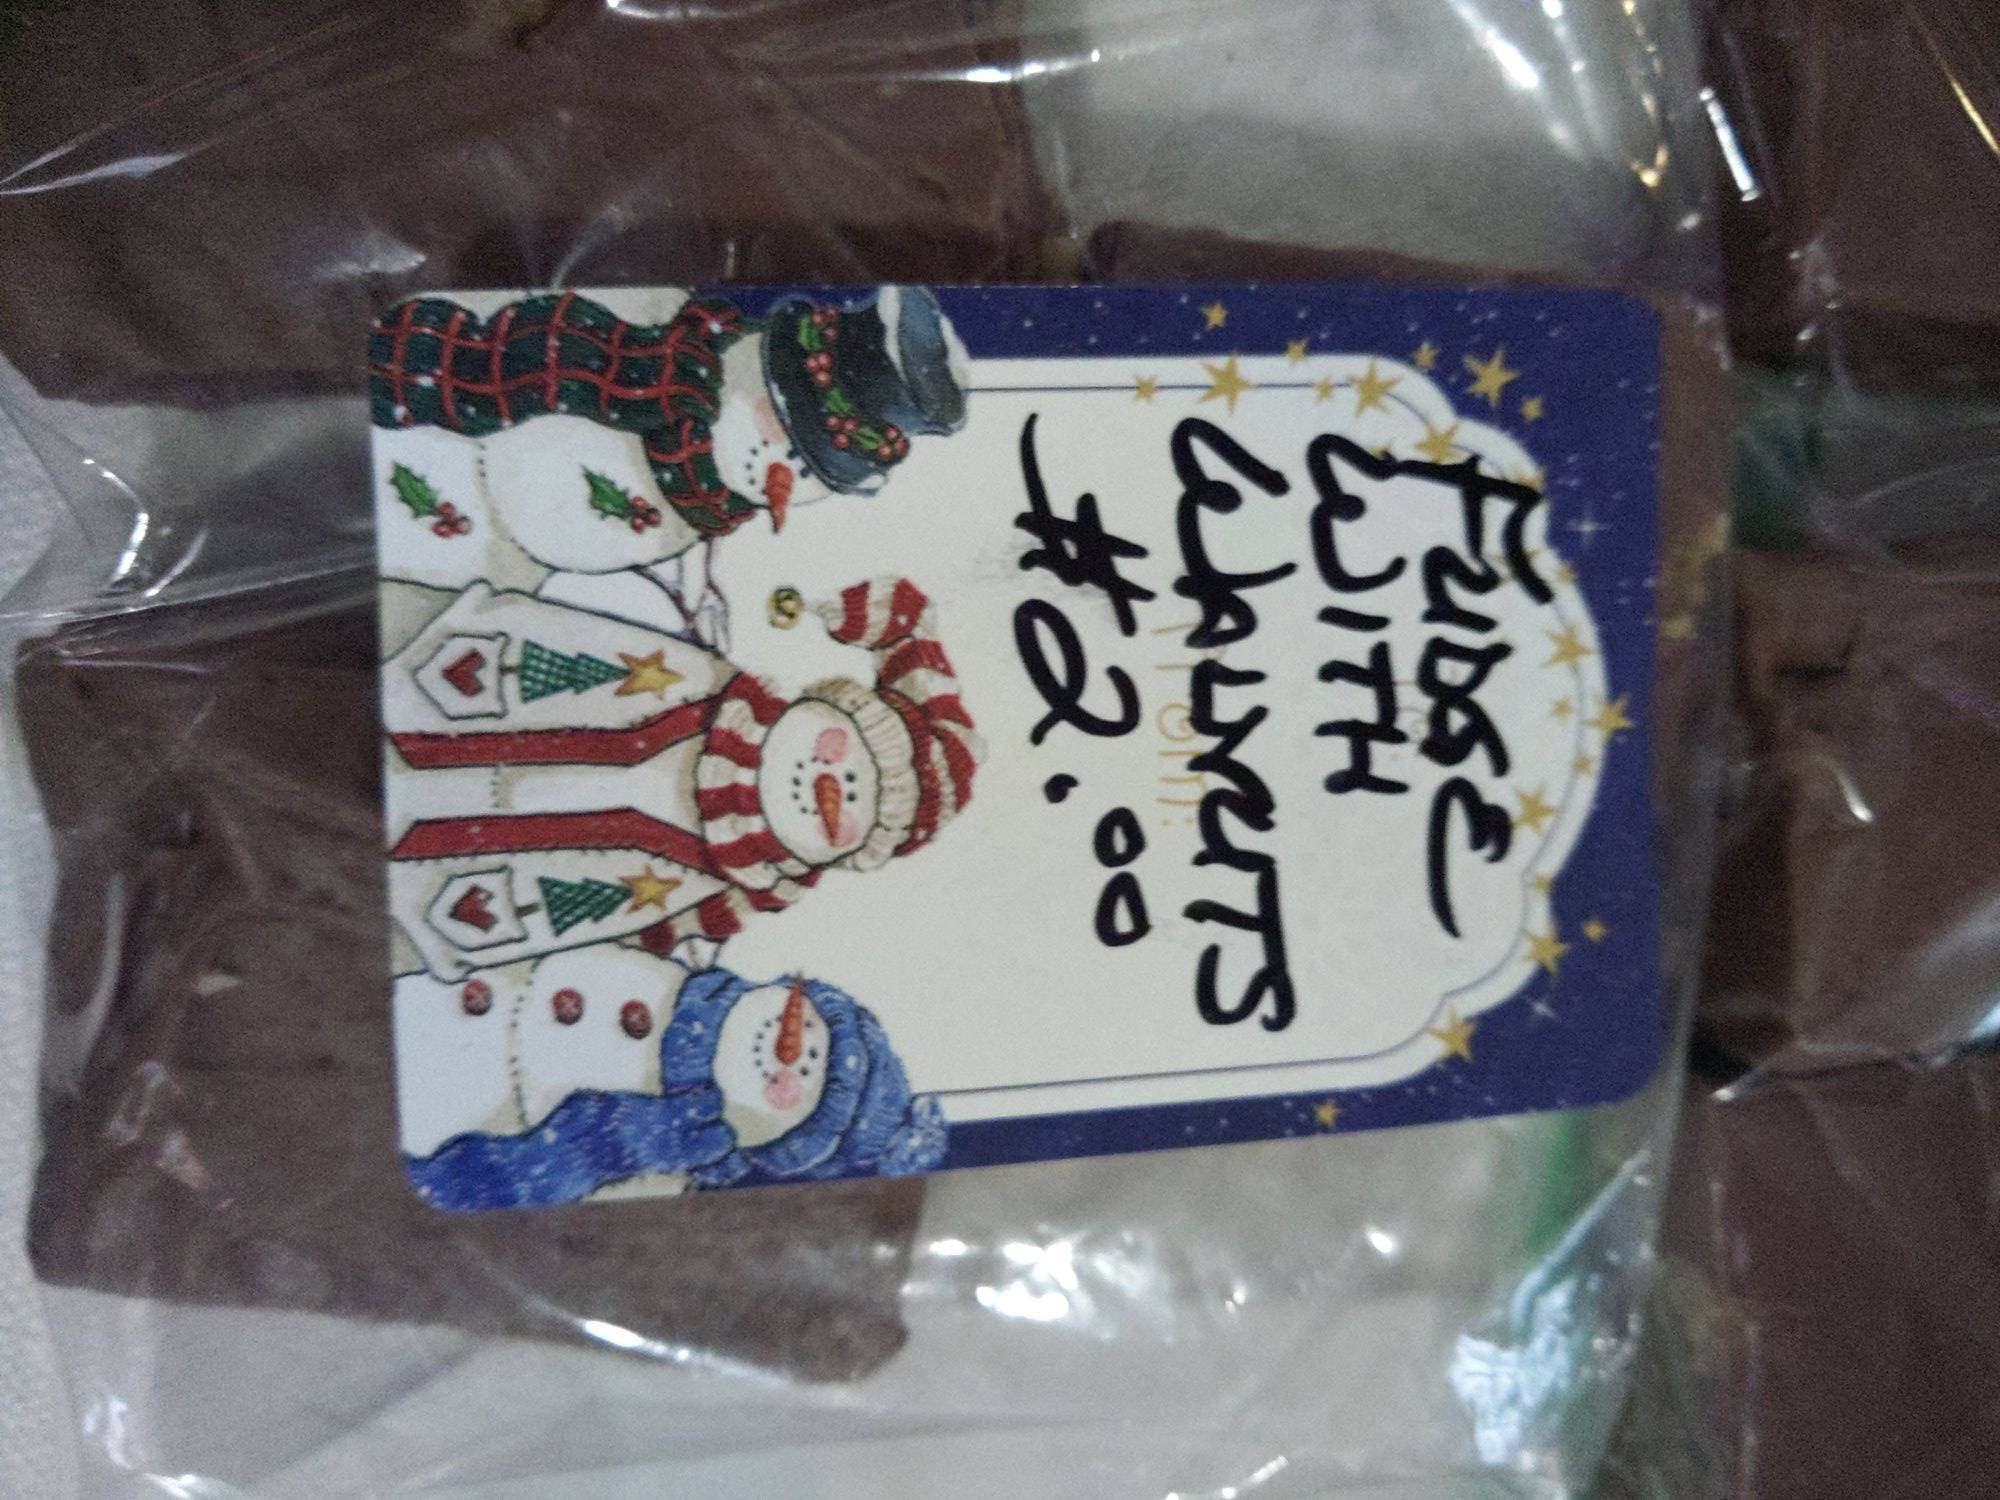 FUDGE
WITH
WALNUTS
- #2.00
From: